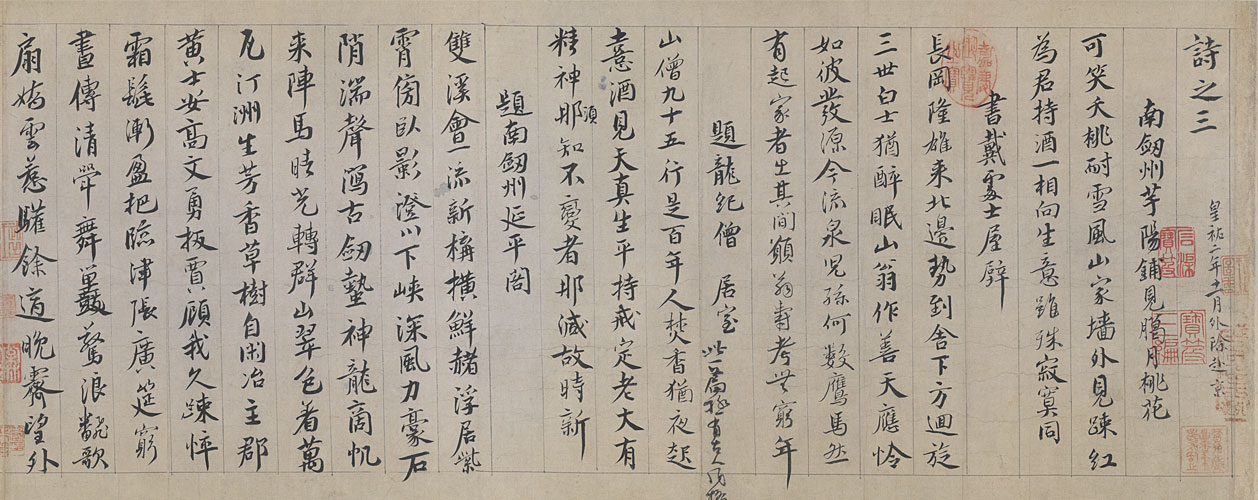 詩之三
皇祐二年十一月外除赴京
南劔州芋陽鋪見臈月桃花
可笑夭桃耐雪風山家墻外見踈紅
為君持酒一相向生意雖殊寂寞同
書戴處士屋壁
長岡隆雄来北邉勢到舎下方迴旋
三世白士猶醉眠山翁作善天應怜
如彼發源今流泉児孫何數鷹馬然
有起家者生其間願翁壽考無窮年
題龍紀僧居室
此一篇極有古人風格
山僧九十五行是百年人焚香猶夜起
憙酒見天真生平持戒定老大有
精神
須
那知不變者那減故時新
題南劔州延平閣
雙溪會一流新構橫鮮赭浮居紫
霄傍臥影澄川下峽深風力豪石
陗湍聲瀉古劔蟄神龍商帆
来陣馬晴光轉群山翠色著萬
瓦汀洲生芳香草樹自閑冶主郡
黄士安高文勇扳賈顧我久踈怦
霜髭漸盈把臨津張廣筵窮
晝傳清斝舞鼉鼓驚浪飜歌
扇嬌雲惹驩餘適晚霽望外